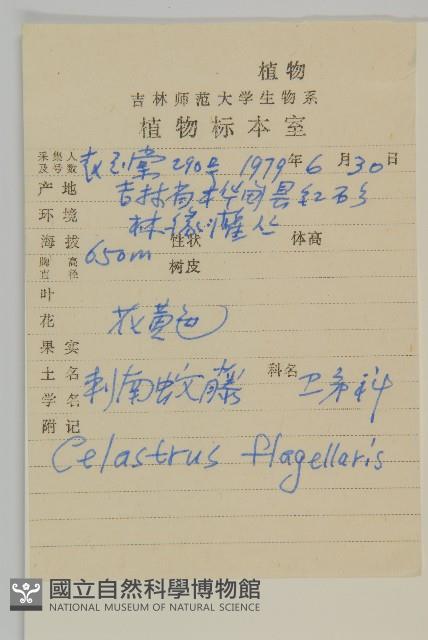 植物
吉林师范大学生物系
植物标本室
采集人及号数 赵 堂 290号 1979年6月30日
产地 吉林省桦甸县红石乡
环境 林缘灌丛
海拔 650m 性状 体高
胸高直径 树皮
叶
花 花黄色
果实
土名 刺南蛇藤 科名 卫矛科
学名
附记
Celastrus flagellaris
國立自然科學博物館
NATIONAL MUSEUM OF NATURAL SCIENCE